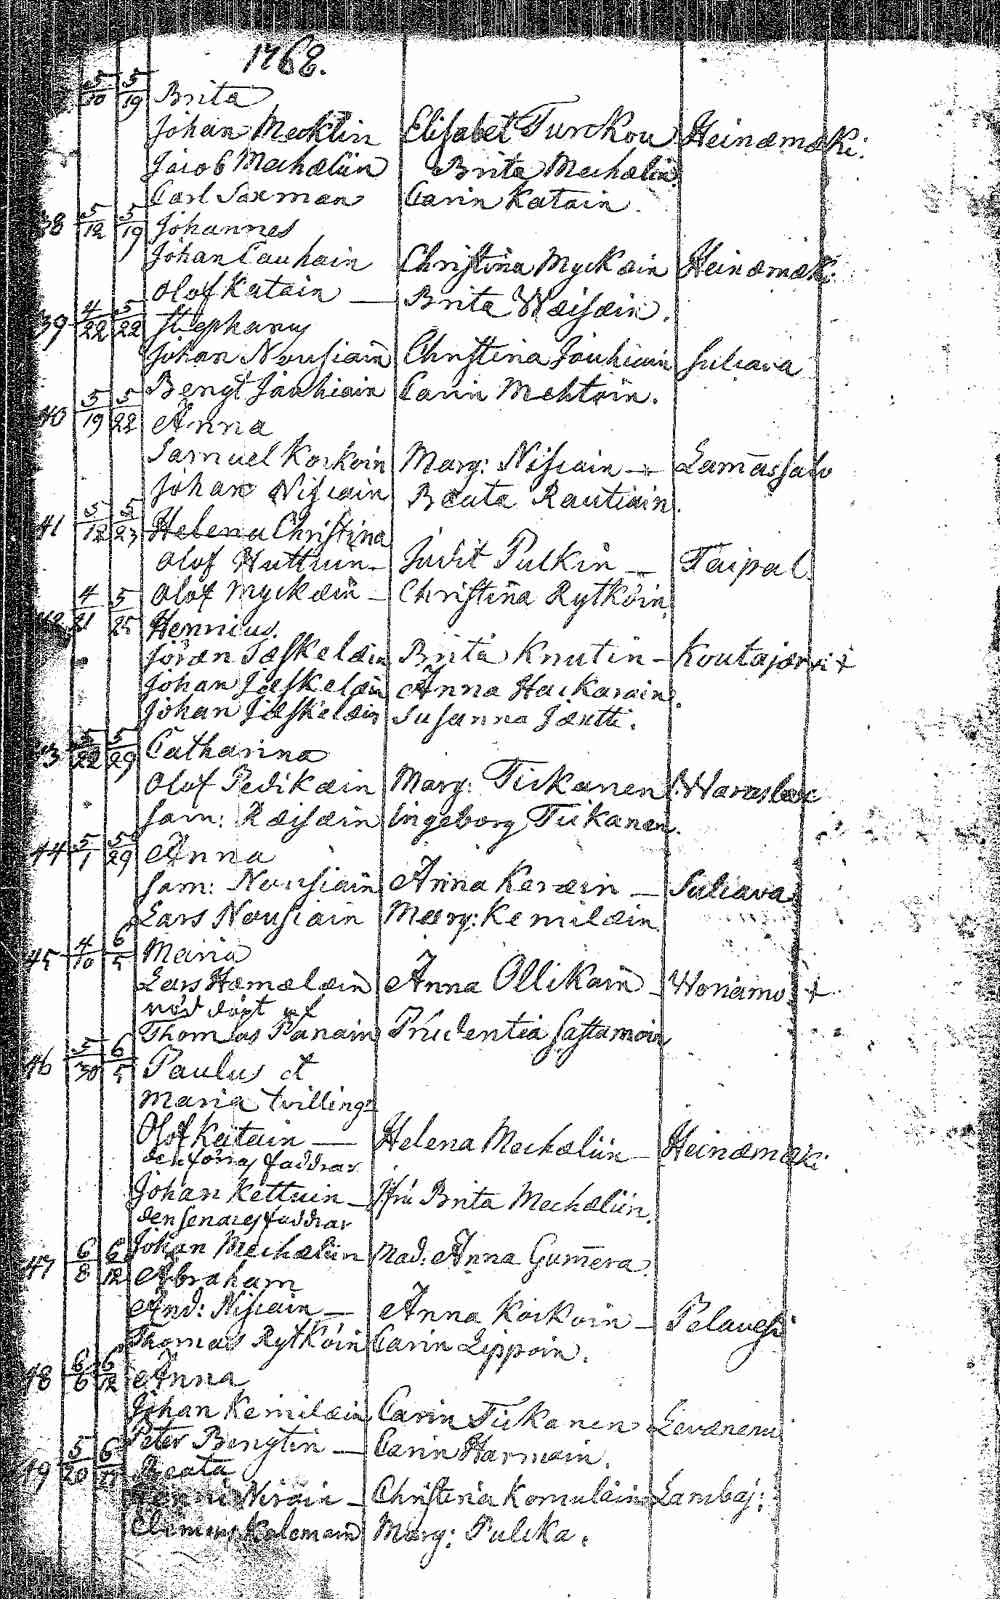 1768.
5/10 5/19 Brita
Johan Mecklin Elisabet Turckou Heinämäki.
Jacob Mechælin Brita Mechælin.
Carl Saxman Carin Katain.
38 5/12 5/19 Johannes
Johan Cauhain Christina Myckæin Heinämäki.
Olof Katain — Brita Wäisæin.
39 4/22 5/22 Stephanus
Johan Nousiain Christina Jauhiain Suliava
Bengt Jauhiain Carin Mehtoin.
40 5/19 5/22 Anna
Samuel Korkoin Marg: Nisiain — Lamassalo
Johan Nisiain Beata Rautiain.
41 5/12 5/23 Helena Christina
Olof Huttuin — Judit Pulkin — Taipal.
Olof Myckæin — Christina Rytköin.
42 4/21 5/25 Henricus.
Jöran Jæskelæin Brita Knutin — Koutajærvi †
Johan Jæskelæin Anna Hackarain.
Johan Jæskelæin Susanna Jæntti.
43 5/22 5/29 Catharina
Olof Pedikæin Marg: Tickanen
Sam: Ræisæin Ingeborg Tickanen.
44 5/1 5/29 Anna
Sam: Nousiain Anna Keræin — Suliava
Lars Nousiain Marg: Kemilæin
45 4/10 6/5 Maria
Lars Hæmælæin Anna Ollikain — Woriamo. †
nöd döpt af
Thomas Panain Prudentia Sastamoin
46 5/30 6/5 Paulus et
Maria tvilling:
Olof Katain — Helena Mechæliin — Heinämäki
den förras faddrar
Johan Kettuin — Hru Brita Mechæliin.
den senares faddrar
Johan Mechæliin Mad: Anna Gumera.
47 6/8 6/12 Abraham
And: Nisiain — Anna Korkoin — Pelavesi
Thomas Rytköin Carin Lippoin.
48 6/6 6/12 Anna
Johan Kemilæin Carin Tickanen Levænemi
Peter Bengtin — Carin Harmain.
49 5/20 6/ Beata
Niroin — Christina Komulain Lambaj:
Clemens Kolemain Marg: Pulcka.